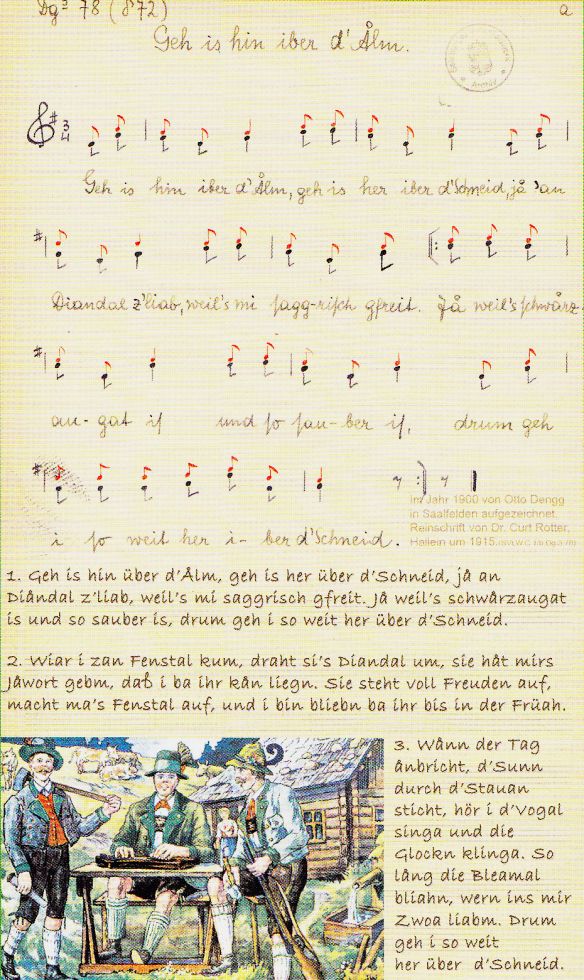 Dg³ 78 (8°72)
a
Geh is hin iber d'Ålm.
Archiv
3
4
Geh is hin iber d'Ålm, geh is her iber d'Schneid, jå 'an
Diandal z'liab, weil's mi sagg-risch gfreit. Jå weil's schwårz-
au-gat is und so sau-ber is, drum geh
i so weit her i-ber d'Schneid.
Im Jahr 1900 von Otto Dengg
in Saalfelden aufgezeichnet.
Reinschrift von Dr. Curt Rotter,
Hallein um 1915.
1. Geh is hin über d'Ålm, geh is her über d'Schneid, jå an
Diåndal z'liab, weil's mi saggrisch gfreit. Jå weil's schwårzaugat
is und so sauber is, drum geh i so weit her über d'Schneid.
2. Wiar i zan Fenstal kum, draht si's Diandal um, sie håt mirs
Jåwort gebm, daß i ba ihr kån liegn. Sie steht voll Freuden auf,
macht ma's Fenstal auf, und i bin bliebn ba ihr bis in der Früah.
3. Wånn der Tag
ånbricht, d'Sunn
durch d'Stauan
sticht, hör i d'Vogal
singa und die
Glockn klinga. So
lång die Bleamal
bliahn, wern ins mir
Zwoa liabm. Drum
geh i so weit
her über d'Schneid.